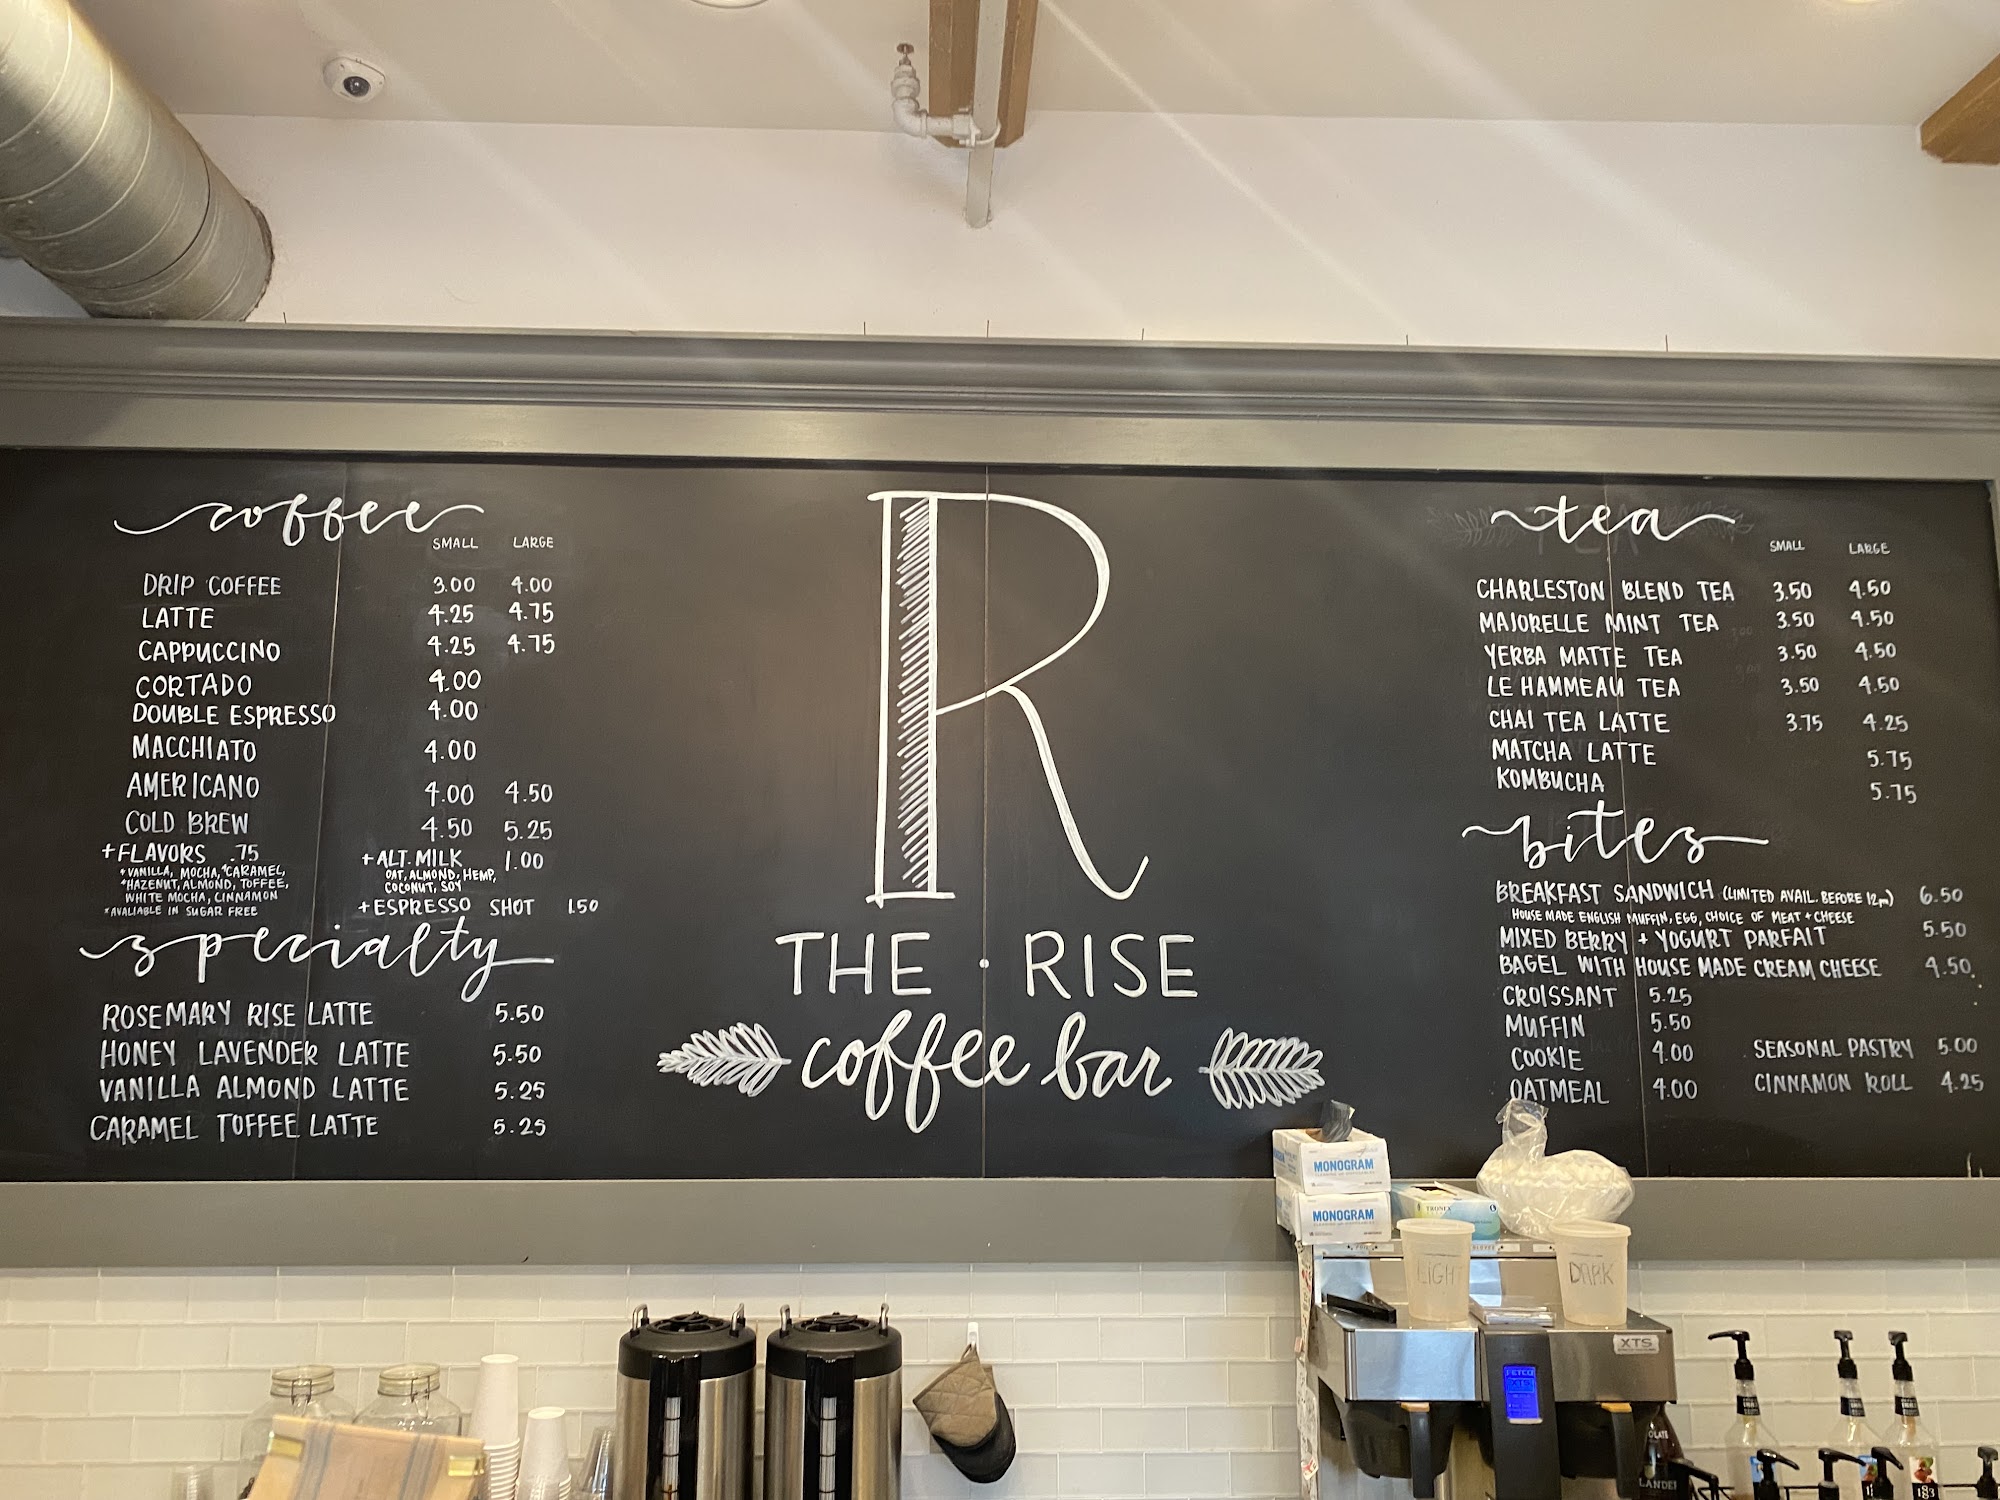 coffee
SMALL LARGE
DRIP COFFEE 3.00 4.00
LATTE 4.25 4.75
CAPPUCCINO 4.25 4.75
CORTADO 4.00
DOUBLE ESPRESSO 4.00
MACCHIATO 4.00
AMERICANO 4.00 4.50
COLD BREW 4.50 5.25
+FLAVORS .75
*VANILLA, MOCHA, *CARAMEL,
*HAZENUT, ALMOND, TOFFEE,
WHITE MOCHA, CINNAMON
*AVALIABLE IN SUGAR FREE
+ALT. MILK 1.00
OAT, ALMOND, HEMP,
COCONUT, SOY
+ESPRESSO SHOT 1.50
specialty
ROSEMARY RISE LATTE 5.50
HONEY LAVENDER LATTE 5.50
VANILLA ALMOND LATTE 5.25
CARAMEL TOFFEE LATTE 5.25
R
THE · RISE
coffee bar
tea
SMALL LARGE
CHARLESTON BLEND TEA 3.50 4.50
MAJORELLE MINT TEA 3.50 4.50
YERBA MATTE TEA 3.50 4.50
LE HAMMEAU TEA 3.50 4.50
CHAI TEA LATTE 3.75 4.25
MATCHA LATTE 5.75
KOMBUCHA 5.75
bites
BREAKFAST SANDWICH (LIMITED AVAIL. BEFORE 12pm) 6.50
HOUSE MADE ENGLISH MUFFIN, EGG, CHOICE OF MEAT + CHEESE
MIXED BERRY + YOGURT PARFAIT 5.50
BAGEL WITH HOUSE MADE CREAM CHEESE 4.50
CROISSANT 5.25
MUFFIN 5.50
COOKIE 4.00
OATMEAL 4.00
SEASONAL PASTRY 5.00
CINNAMON ROLL 4.25
MONOGRAM
MONOGRAM
TRONEX
LIGHT
DARK
XTS
FETCO
XTS
1883